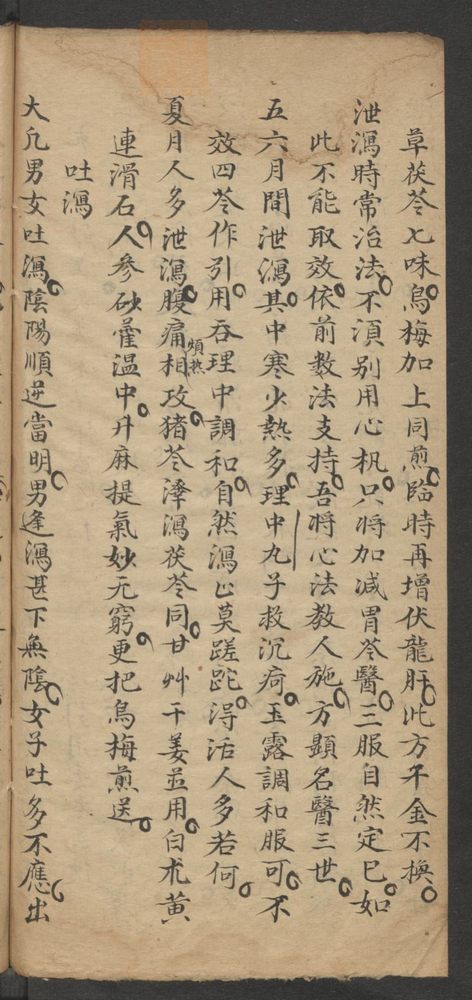 草茯苓七味。烏梅加上同煎。臨時再增伏龍肝。此方千金不換。
泄瀉時常治法。不湏别用心机。只將加减胃苓醫。三服自然定已。如
此不能取效。依前数法支持。吾將心法教人施。方顯名醫三世。
五六月間泄瀉。其中寒少熱多。理中九子救沉疴。玉露調和服可。不
效四苓作引。用吞理中調和。自然瀉止莫蹉跎。得活人多若何。
夏月人多泄瀉。腹痛煩热相攻。猪苓澤瀉茯苓同。甘艸干姜並用。白朮黄
連滑石。人參砂藿温中。升麻提氣妙无窮。更把烏梅煎送。
吐瀉
大凢男女吐瀉。陰陽順逆當明。男逢瀉甚下無陰。女子吐多不應。出